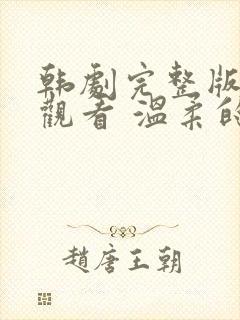 韩劇完整版
觀看 溫柔的
趙唐王朝